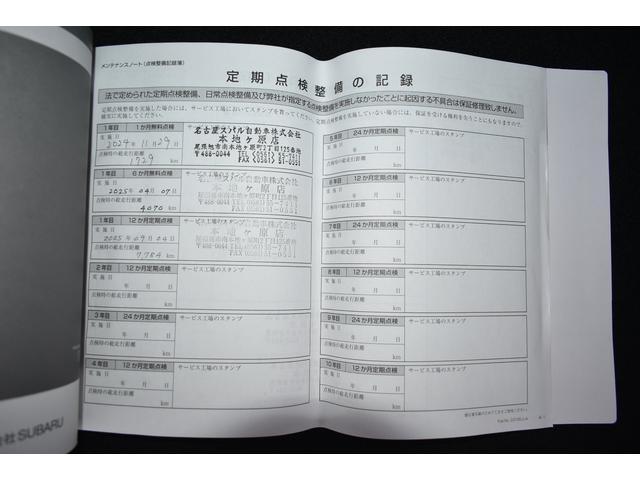 メンテナンスノート(点検整備記録簿)
定期点検整備の記録
法で定められた定期点検整備、日常点検整備及び弊社が指定する点検整備を実施しなかったことに起因する不具合は保証修理致しません。
定期点検整備を実施した場合には、サービス工場においてスタンプを貰ってください。定期点検整備を実施していない場合には、保証を受ける権利を失うことにもなりますので、
確実に実施してください。
1年目 1か月無料点検
実施日
2024年11月29日
点検時の総走行距離
1729 km
名古屋スバル自動車株式会社
本地ヶ原店
尾張旭市南本地ヶ原町2丁目125番地
〒488-0044
1年目 6か月無料点検 サービス工場のスタンプ
実施日
2025年04月07日
点検時の総走行距離
4070 km
本地ヶ原店
〒488-0044
1年目 12か月定期点検 サービス工場のスタンプ
実施日
2025年09月04日
点検時の総走行距離
7,784 km
本地ヶ原店
〒488-0044
2年目 12か月定期点検 サービス工場のスタンプ
実施日
年 月 日
点検時の総走行距離
km
3年目 24か月定期点検 サービス工場のスタンプ
実施日
年 月 日
点検時の総走行距離
km
4年目 12か月定期点検 サービス工場のスタンプ
実施日
年 月 日
点検時の総走行距離
km
5年目 24か月定期点検 サービス工場のスタンプ
実施日
年 月 日
点検時の総走行距離
km
6年目 12か月定期点検 サービス工場のスタンプ
実施日
年 月 日
点検時の総走行距離
km
7年目 24か月定期点検 サービス工場のスタンプ
実施日
年 月 日
点検時の総走行距離
km
8年目 12か月定期点検 サービス工場のスタンプ
実施日
年 月 日
点検時の総走行距離
km
9年目 24か月定期点検 サービス工場のスタンプ
実施日
年 月 日
点検時の総走行距離
km
10年目 12か月定期点検 サービス工場のスタンプ
実施日
年 月 日
点検時の総走行距離
km
会社 SUBARU